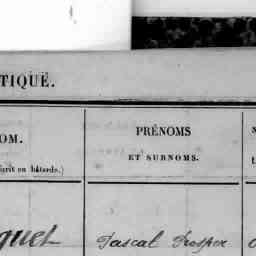 TIQUE.
OM.
PRÉNOMS
ET SURNOMS.
écrit en bâtarde.)
quet Pascal Prosper